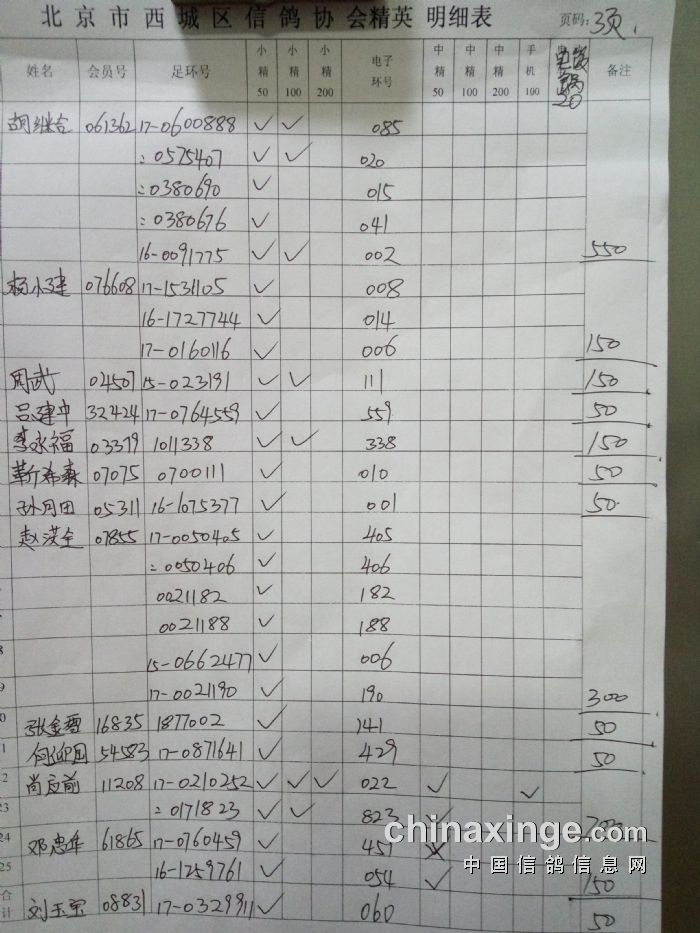 北京市西城区信鸽协会精英明细表 页码:3页
姓名 会员号 足环号 小精50 小精100 小精200 电子环号 中精50 中精100 中精200 手机100 20 备注
061362 17-0600888 ✓ ✓ 085
:0575407 ✓ ✓ 020
:0380690 ✓ 015
:0380676 ✓ 041
16-0091775 ✓ ✓ 002 550
杨小建 076608 17-1531105 ✓ 008
16-1727744 ✓ 014
17-0160116 ✓ 006 150
周武 04507 15-023191 ✓ ✓ 111 150
吕建中 32424 17-0764559 ✓ 559 50
李永福 03379 1011338 ✓ ✓ 338 150
靳希森 07075 0700111 ✓ 010 50
孙月田 05311 16-1075377 ✓ 001 50
赵洪全 07855 17-0050405 ✓ 405
:0050406 ✓ 406
0021182 ✓ 182
0021188 ✓ 188
8 15-0662477 ✓ 006
9 17-0021190 ✓ 190 300
0 16835 1877002 ✓ 141 50
1 54583 17-0871641 ✓ 429 50
2 肖应前 11208 17-0210252 ✓ ✓ ✓ 022 ✓ ✓
23 :0171823 ✓ ✓ 823 ✓ 700
24 61865 17-0760459 ✓ 451
25 16-1259761 ✓ 054 ✓ 150
合计 刘玉宝 08831 17-0329911 ✓ 060 50
chinaxinge.com
中国信鸽信息网